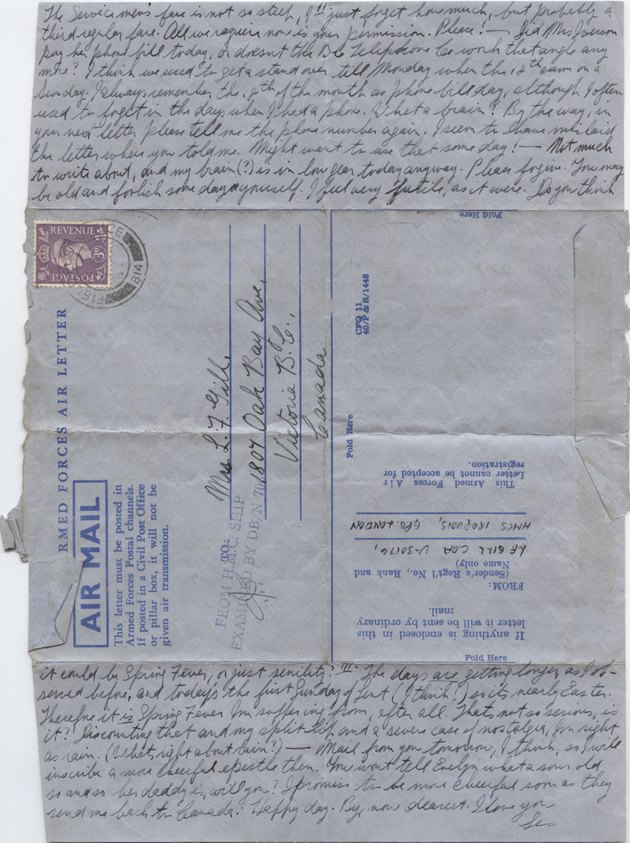 The Servicemen's fare is not so steep, I'll just forget how much, but probably a
third regular fare. All we require now is your permission. Please! — Did Mrs Iverson
pay the phone bill today, or doesn't the B.C. Telephone Co work that angle any
more? I think we used to get a stand over till Monday when the 18th came on a
Sunday. I always remember the 18th of the month as phone bill day, although I often
used to forget in the days when I had a phone. What a brain? By the way, in
your next letter please tell me the phone number again. I seem to have mislaid
the letter where you told me. Might want to use that some day! — Not much
to write about, and my brain (?) is in low gear today anyway. Please forgive. You may
be old and foolish some day yourself. I feel very futile, as it were. Do you think
REVENUE
3D
POSTAGE
914
ARMED FORCES AIR LETTER
AIR MAIL
This letter must be posted in
Armed Forces Postal channels.
If posted in a Civil Post Office
or pillar box, it will not be
given air transmission.
Mrs L. F. Gill,
1807 Oak Bay Ave,
Victoria B.C.,
Canada
FROM H.M.C. SHIP
TO:
EXAMINED BY DB/N
Fold Here
CFQ 11
40/P & S/1448
Fold Here
This Armed Forces Air
Letter cannot be accepted for
registration.
HMCS IROQUOIS, GPO LONDON
GILL COA V-50176,
(Sender's Regt'l No., Rank and
Name only)
FROM:
If anything is enclosed in this
letter it will be sent by ordinary
mail.
Fold Here
it could be Spring Fever, or just senility? !!! The days are getting longer, as I ob-
served before, and today's the first Sunday of Lent (I think) so its nearly Easter.
Therefore it is Spring Fever Im suffering from, after all. That's not so serious, is
it? Discounting that and my split lip and a severe case of nostalgia, I'm right
as rain. (What's right about rain?) — Mail from you tomorrow, I think, so I will
inscribe a more cheerful epistle then. You won't tell Evelyn what a sour old
so and so her daddy is, will you? I promise to be more cheerful soon as they
send me back to Canada! Happy day. Bye now dearest. I love you
Les